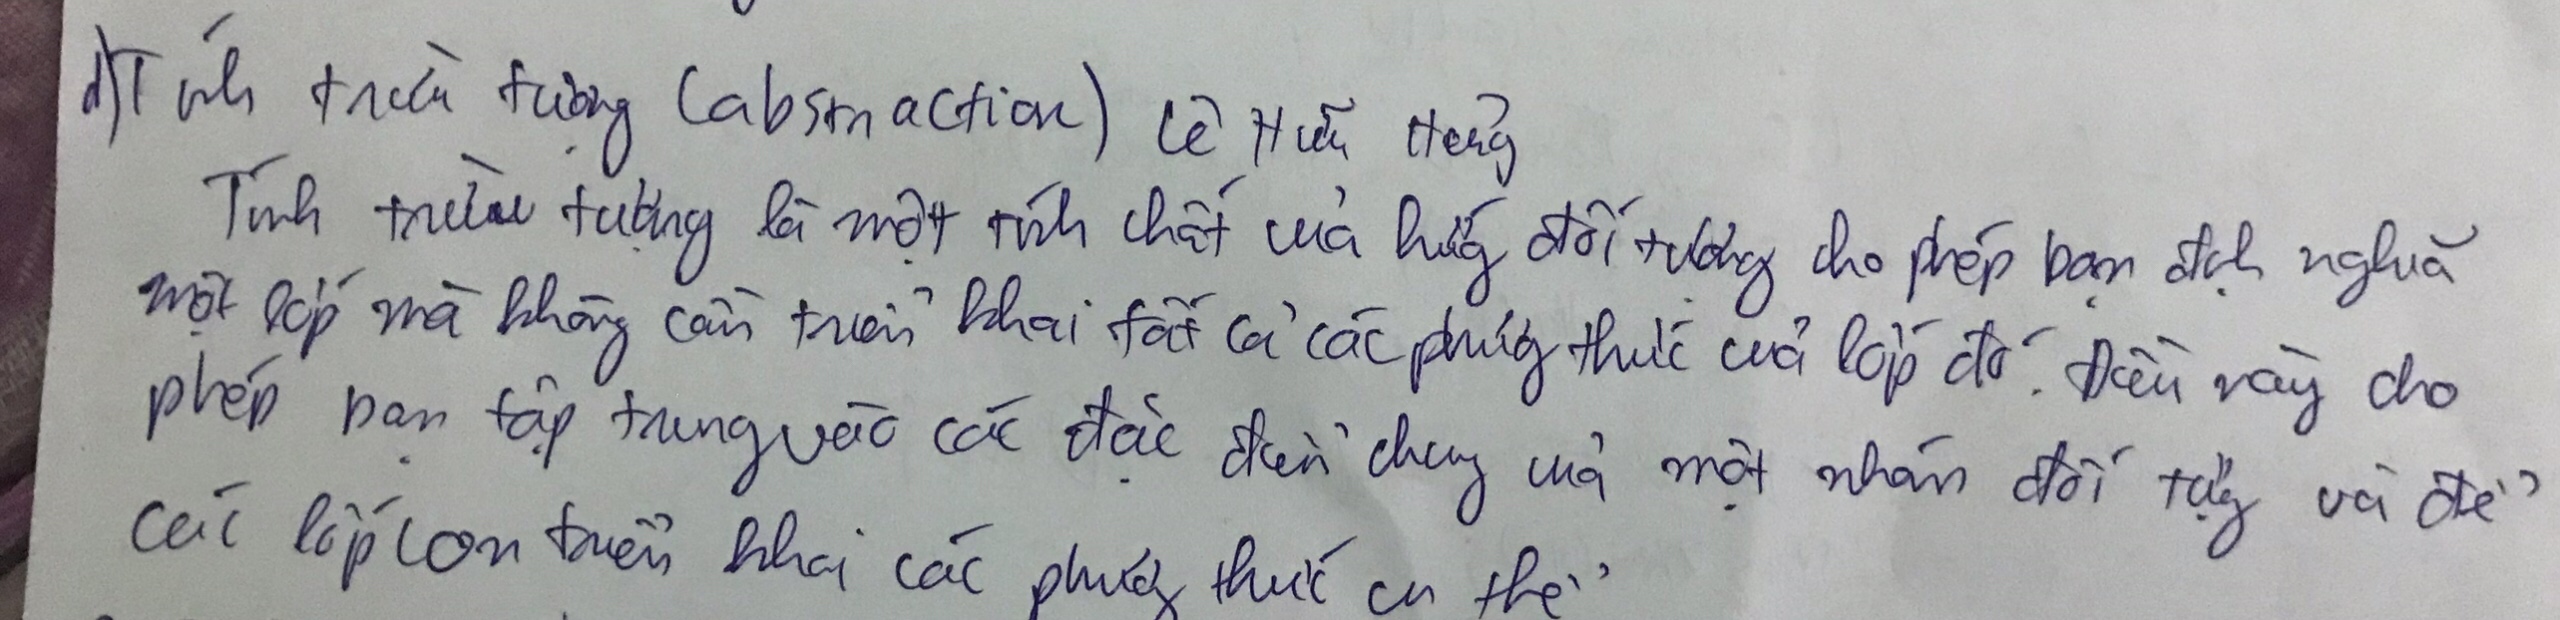 d) Tính trừu tượng (absmaction) Lê Hữu Hưng
Tính trừu tượng là một tính chất của hướng đối tượng cho phép bạn định nghĩa
một lớp mà không cần triển khai tất cả các phương thức của lớp đó. Điều này cho
phép bạn tập trung vào các đặc điểm chung của một nhóm đối tượng và để
các lớp con triển khai các phương thức cụ thể